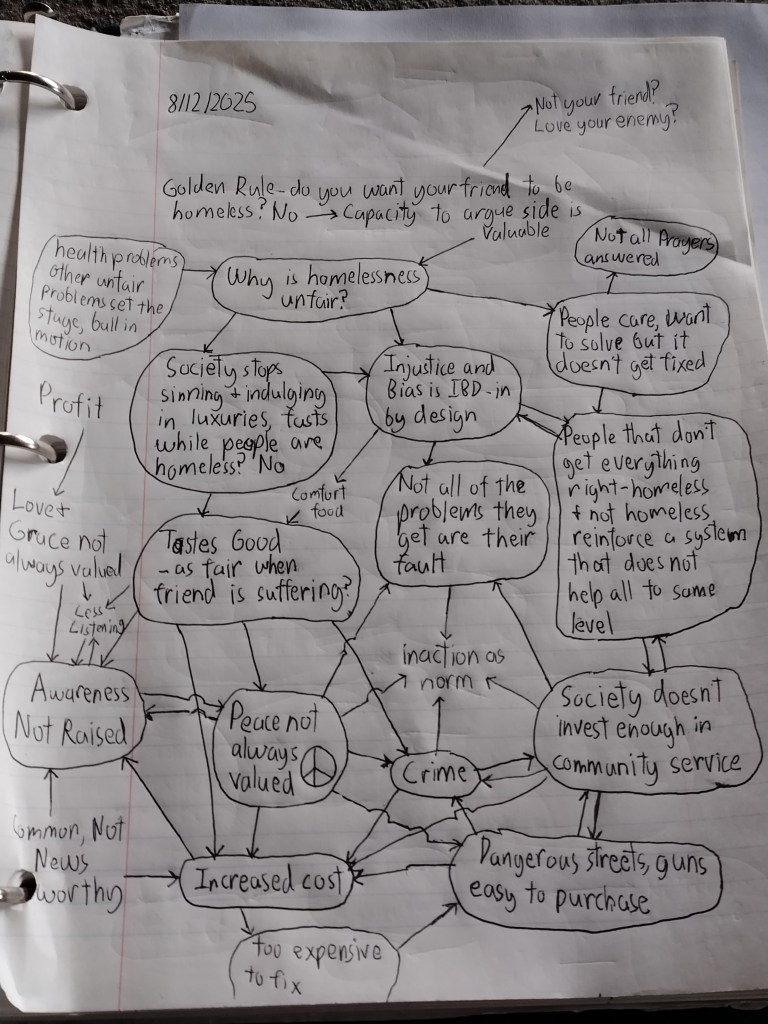 8/12/2025
Not your friend?
Love your enemy?
Golden Rule - do you want your friend to be
homeless? No → Capacity to argue side is
valuable
Not all Prayers
answered
health problems
other unfair
problems set the
stage, ball in
motion
Why is homelessness
unfair?
People care, want
to solve but it
doesn't get fixed
Society stops
sinning + indulging
in luxuries, fasts
while people are
homeless? No
Injustice and
Bias is IBD-in
by design
Profit
People that don't
get everything
right-homeless
+ not homeless
reinforce a system
that does not
help all to same
level
Comfort
food
Not all of the
problems they
get are their
fault
Love +
Grace not
always valued
Tastes Good
- as fair when
friend is suffering?
Less
Listening
inaction as
norm
Awareness
Not Raised
Peace not
always
valued
Society doesn't
invest enough in
community service
Crime
Common, Not
News
worthy
Increased cost
Dangerous streets, guns
easy to purchase
too expensive
to fix